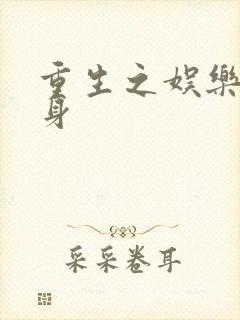 重生之娱樂
身
采采卷耳